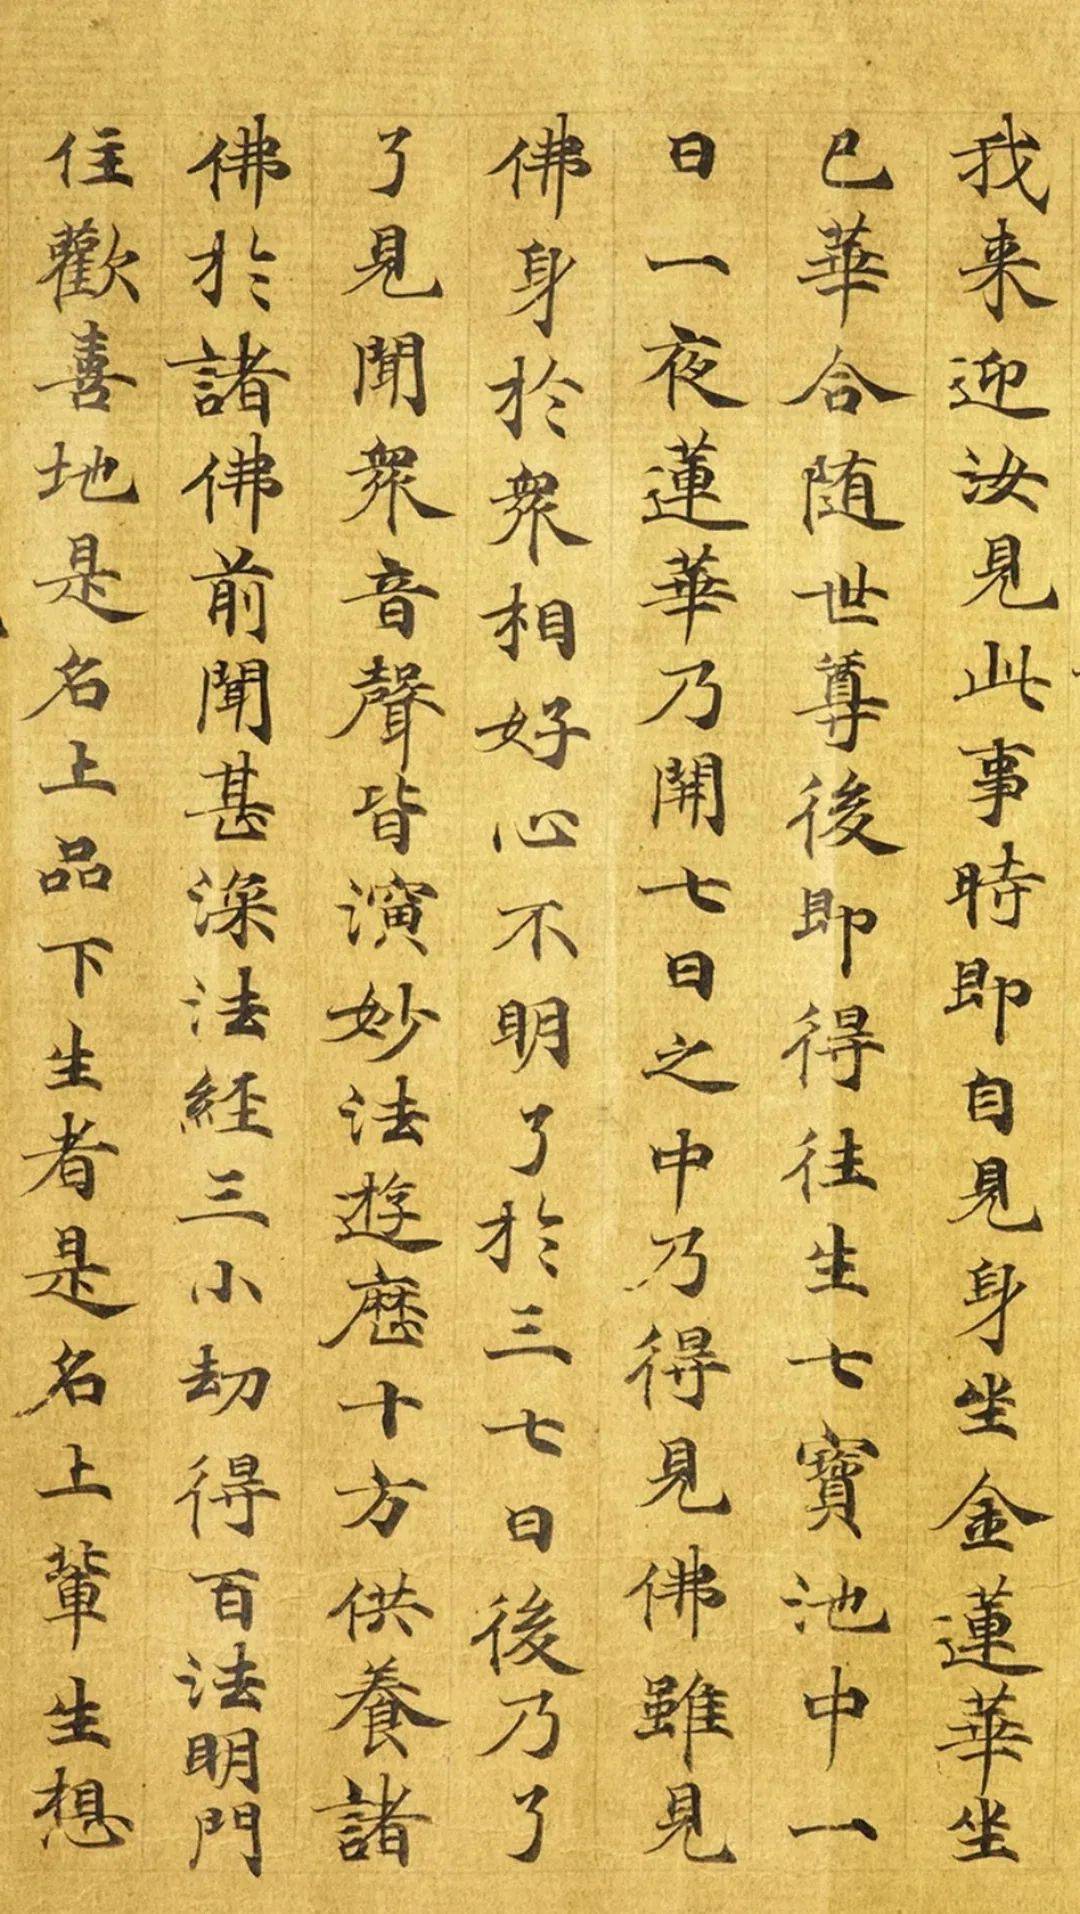 我来迎汝見此事時即自見身坐金蓮華坐
已華合随世尊後即得往生七寶池中一
日一夜蓮華乃開七日之中乃得見佛雖見
佛身於衆相好心不明了於三七日後乃了
了見聞衆音聲皆演妙法遊歷十方供養諸
佛於諸佛前聞甚深法經三小劫得百法明門
住歡喜地是名上品下生者是名上輩生想